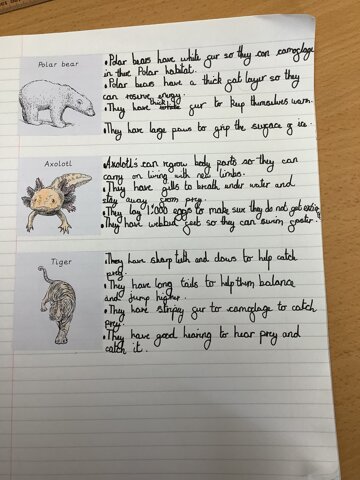 Polar bear
• Polar bears have white fur so they can camoflage
in there Polar habitat.
• Polar bears have a thick fat layer so they
can reserve energy.
• They have thick fur to keep themselves warm.
• They have large paws to grip the surface of ice.
Axolotl
• Axolotl's can regrow body parts so they can
carry on living with new limbs.
• They have gills to breath under water and
stay away from prey.
• They lay 1,000 eggs to make sure they do not get
• They have webbed feet so they can swim faster.
Tiger
• They have sharp teeth and claws to help catch
prey.
• They have long tails to help them balance
and jump higher.
• They have stripey fur to camoflage to catch
prey.
• They have good hearing to hear prey and
catch it.